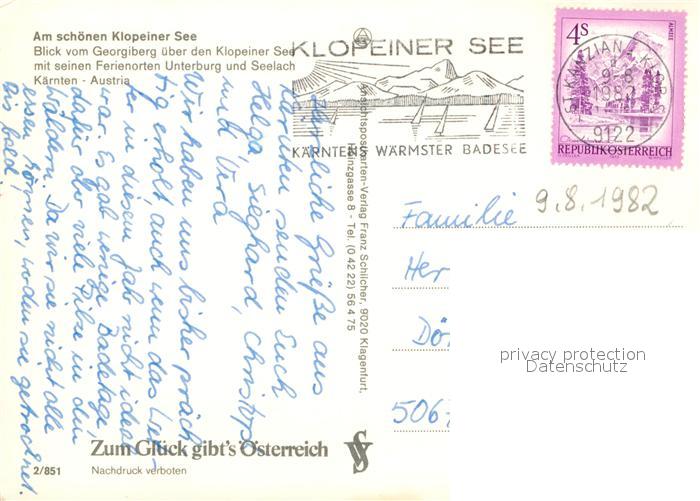 Am schönen Klopeiner See
Blick vom Georgiberg über den Klopeiner See
mit seinen Ferienorten Unterburg und Seelach
Kärnten - Austria
KLOPEINER SEE
KÄRNTENS WÄRMSTER BADESEE
ST. KANZIAN
9.-8.
1982
9122
4S
ALMSEE
REPUBLIK ÖSTERREICH
Herzliche Grüße aus
Kärnten senden Euch
Helga, Sieghard, Christoph
und Vera
Wir haben uns bisher präch-
tig erholt, auch wenn das Wet-
ter in diesem Jahr nicht ideal
war. Es gab wenige Badetage,
dafür aber viele Pilze in den
Wäldern. Da wir sie nicht alle
essen können, werden sie getrocknet.
Bis bald
Ansichtspostkarten-Verlag Franz Schilcher, 9020 Klagenfurt,
Hainzgasse 8 - Tel. (0 42 22) 56 4 75
9.8.1982
Familie
Her
Dö
506
privacy protection
Datenschutz
Zum Glück gibt's Österreich
2/851
Nachdruck verboten